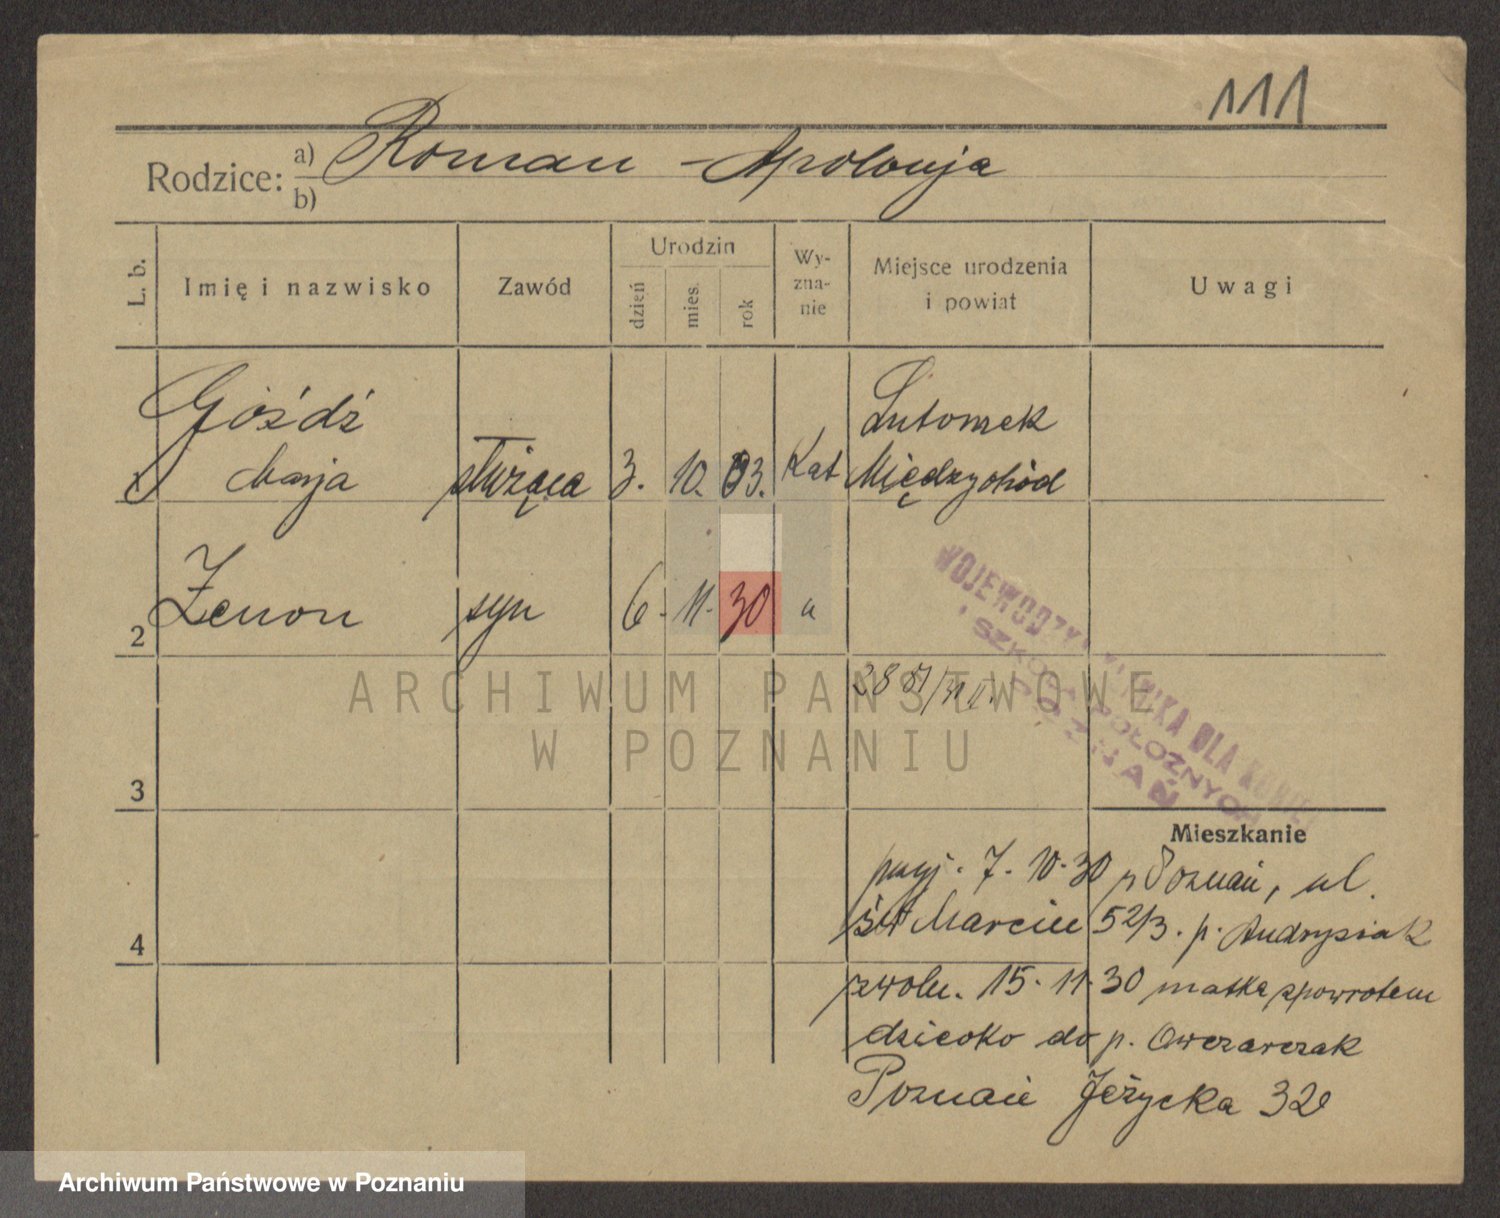 111
Rodzice: a) Roman - Apolonja
b)
L. b.
Imię i nazwisko
Zawód
Urodzin
dzień
mies.
rok
Wy-
zna-
nie
Miejsce urodzenia
i powiat
Uwagi
Góźdź
Marja służąca 3. 10. 03. Kat
Lutomek
Międzychód
2 Zenon syn 6. 11. 30 "
WOJEWÓDZKA KLINIKA DLA KOBIET
I SZKOŁA POŁOŻNYCH
POZNAŃ
3
Mieszkanie
4
przyj. 7. 10. 30 z Poznań, ul.
św Marcin 52/3. p. Andrysiak
zwoln. 15. 11. 30 matka spowrotem
dziecko do p. Owczarczak
Poznań Jeżycka 32
ARCHIWUM PAŃSTWOWE
W POZNANIU
Archiwum Państwowe w Poznaniu